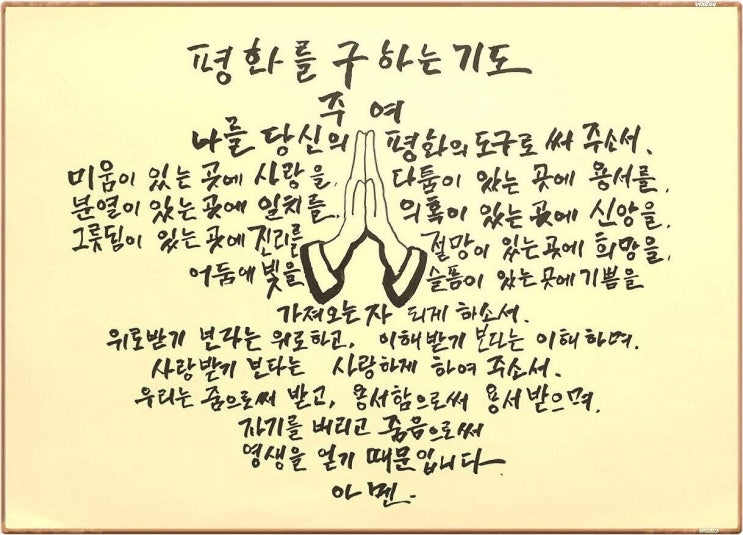 평화를 구하는 기도
주 여
나를 당신의 평화의 도구로 써 주소서.
미움이 있는 곳에 사랑을, 다툼이 있는 곳에 용서를,
분열이 있는 곳에 일치를, 의혹이 있는 곳에 신앙을,
그릇됨이 있는 곳에 진리를 절망이 있는 곳에 희망을,
어둠에 빛을 슬픔이 있는 곳에 기쁨을
가져오는 자 되게 하소서.
위로받기 보다는 위로하고, 이해받기 보다는 이해하며,
사랑받기 보다는 사랑하게 하여 주소서.
우리는 줌으로써 받고, 용서함으로써 용서받으며,
자기를 버리고 죽음으로써
영생을 얻기 때문입니다
아멘.